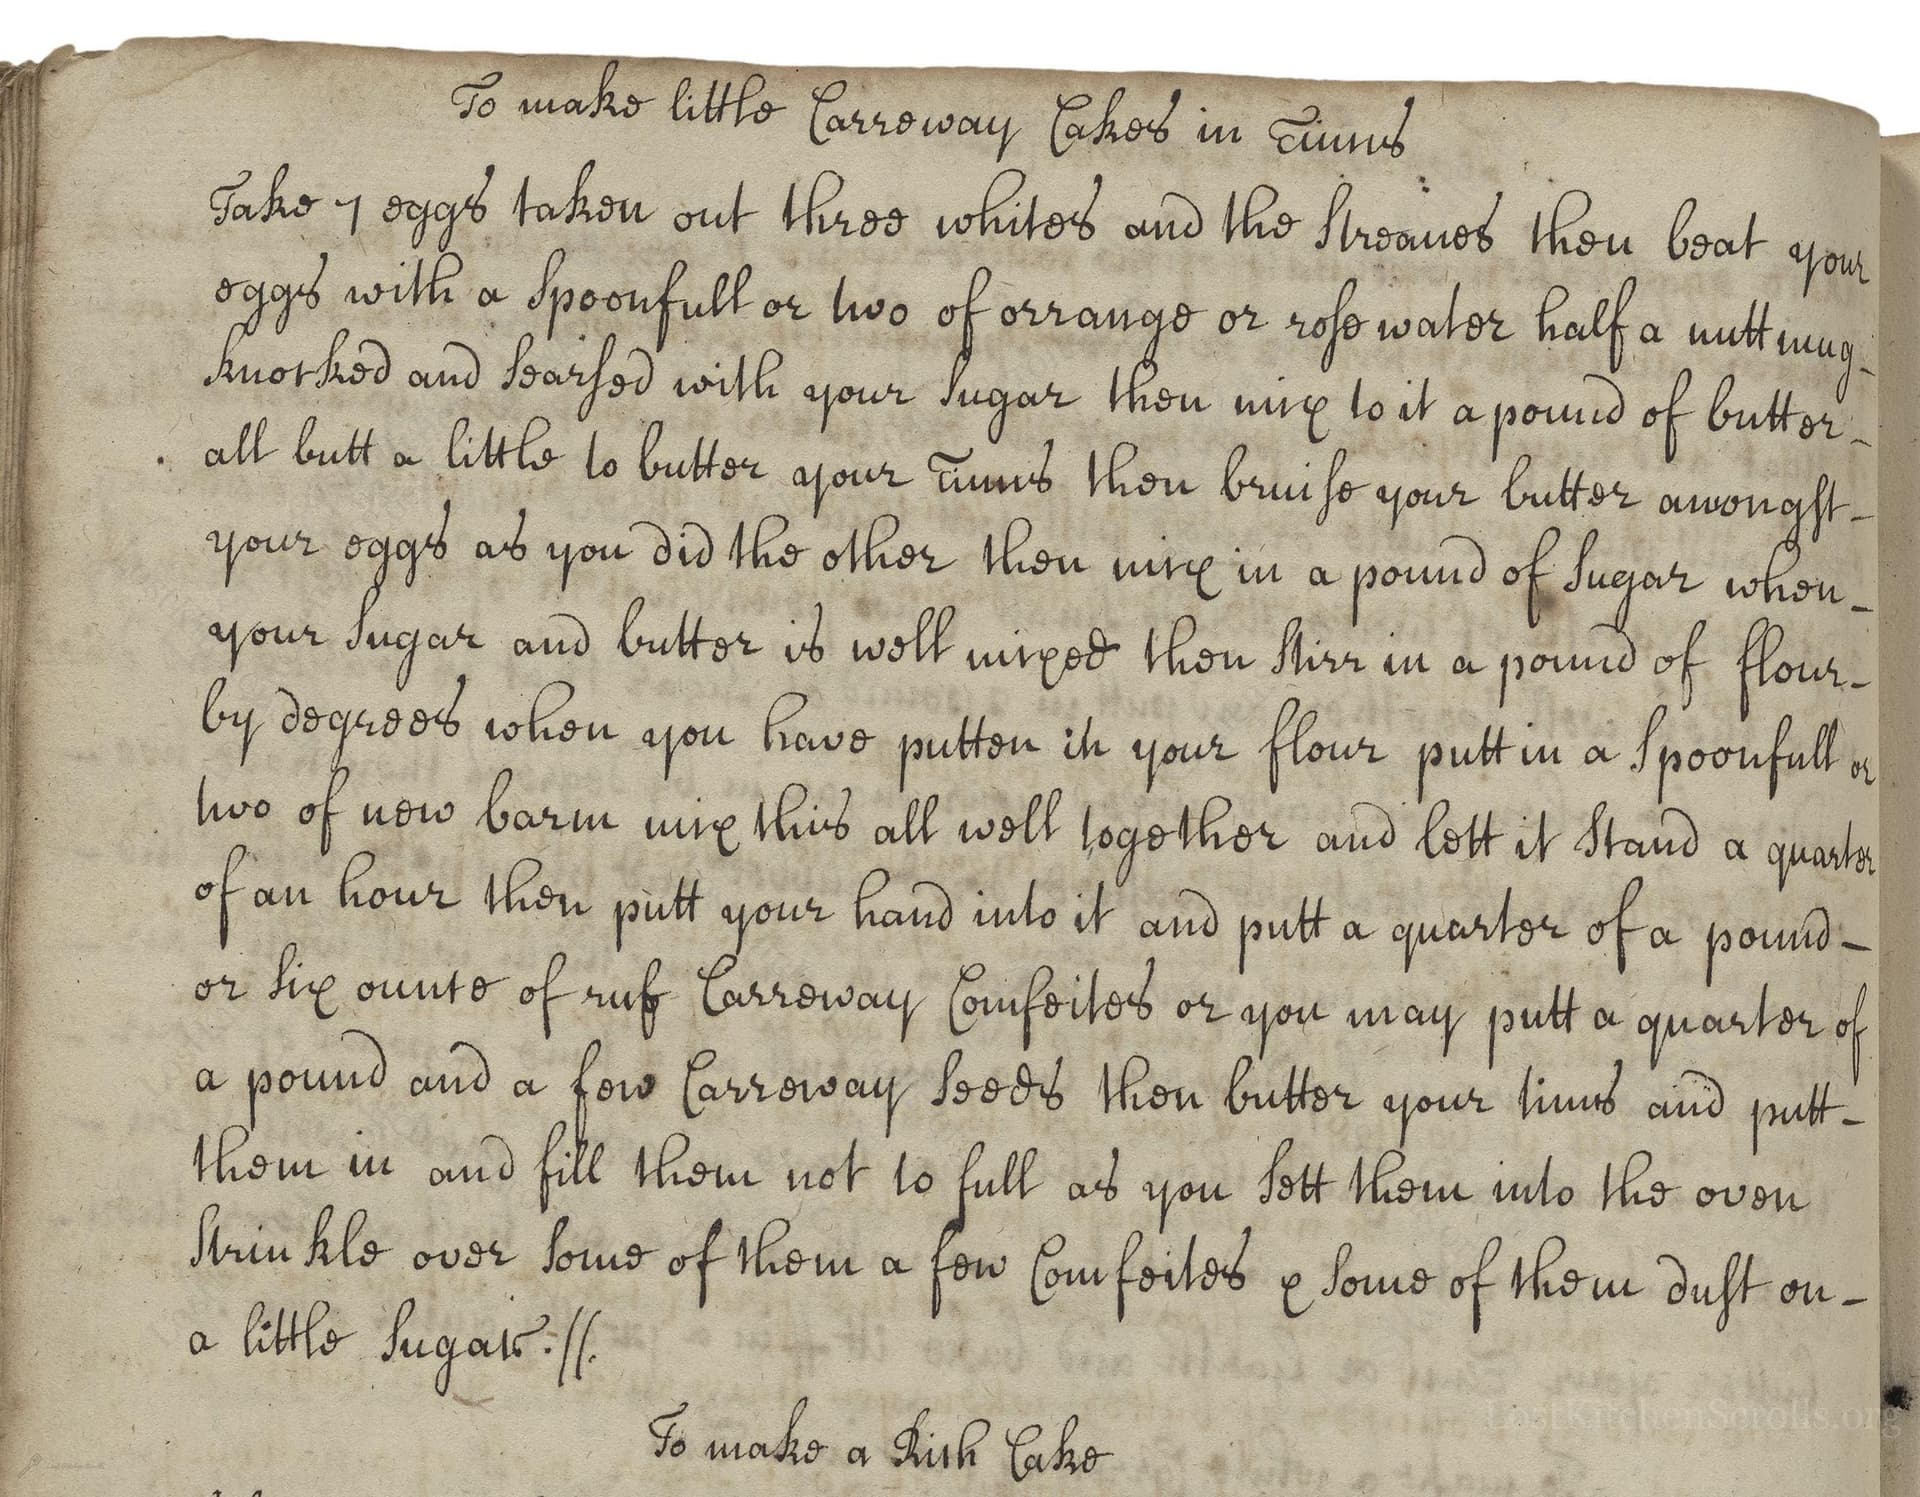 To make little Carreway Cakes in Tinns
Take 7 eggs taken out three whites and the Streanes then beat your
eggs with a Spoonfull or two of orrange or rose water half a nuttmug
knocked and Searsed with your Sugar then mix to it a pound of butter
all butt a little to butter your Tinns then bruise your butter amongst
your eggs as you did the other then mix in a pound of Sugar when
your Sugar and butter is well mixed then Stirr in a pound of flour
by degrees when you have putten in your flour putt in a Spoonfull or
two of new barm mix this all well together and lett it Stand a quarter
of an hour then putt your hand into it and putt a quarter of a pound
or Six ounce of ruf Carreway Comfeites or you may putt a quarter of
a pound and a few Carreway Seeds then butter your tinns and putt
them in and fill them not to full as you Sett them into the oven
Strinkle over Some of them a few Comfeites & Some of them dust on
a little Sugar://.
To make a Rich Cake
LostKitchenScrolls.org